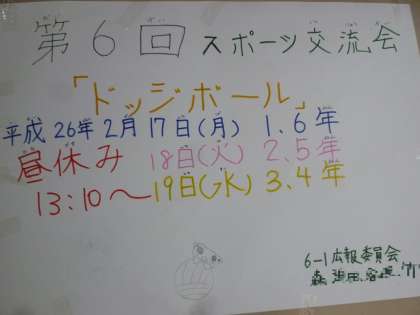 第6回 スポーツ交流会
「ドッジボール」
平成 26年 2月 17日(月) 1.6年
昼休み 18日(火) 2.5年
13:10〜 19日(水) 3.4年
6-1 広報委員会
森